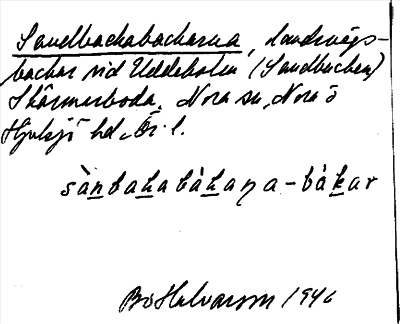 Sandbackabackarna, landsvägs-
backar vid Uddeholm (Sandbacken)
Skärmarboda, Nora sn, Nora o
Hjulsjö hd, Ör. l.
sànbakabàkaṇa - bàkar
Bo Halvarson 1946